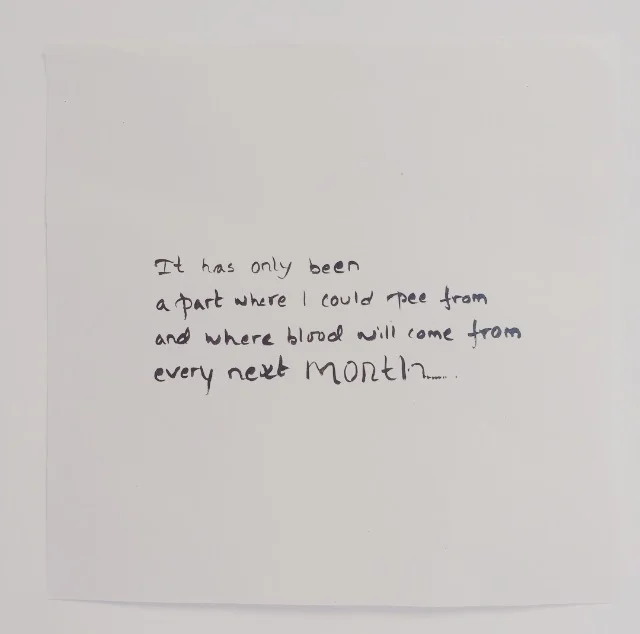 It has only been
a part where I could pee from
and where blood will come from
every next month...